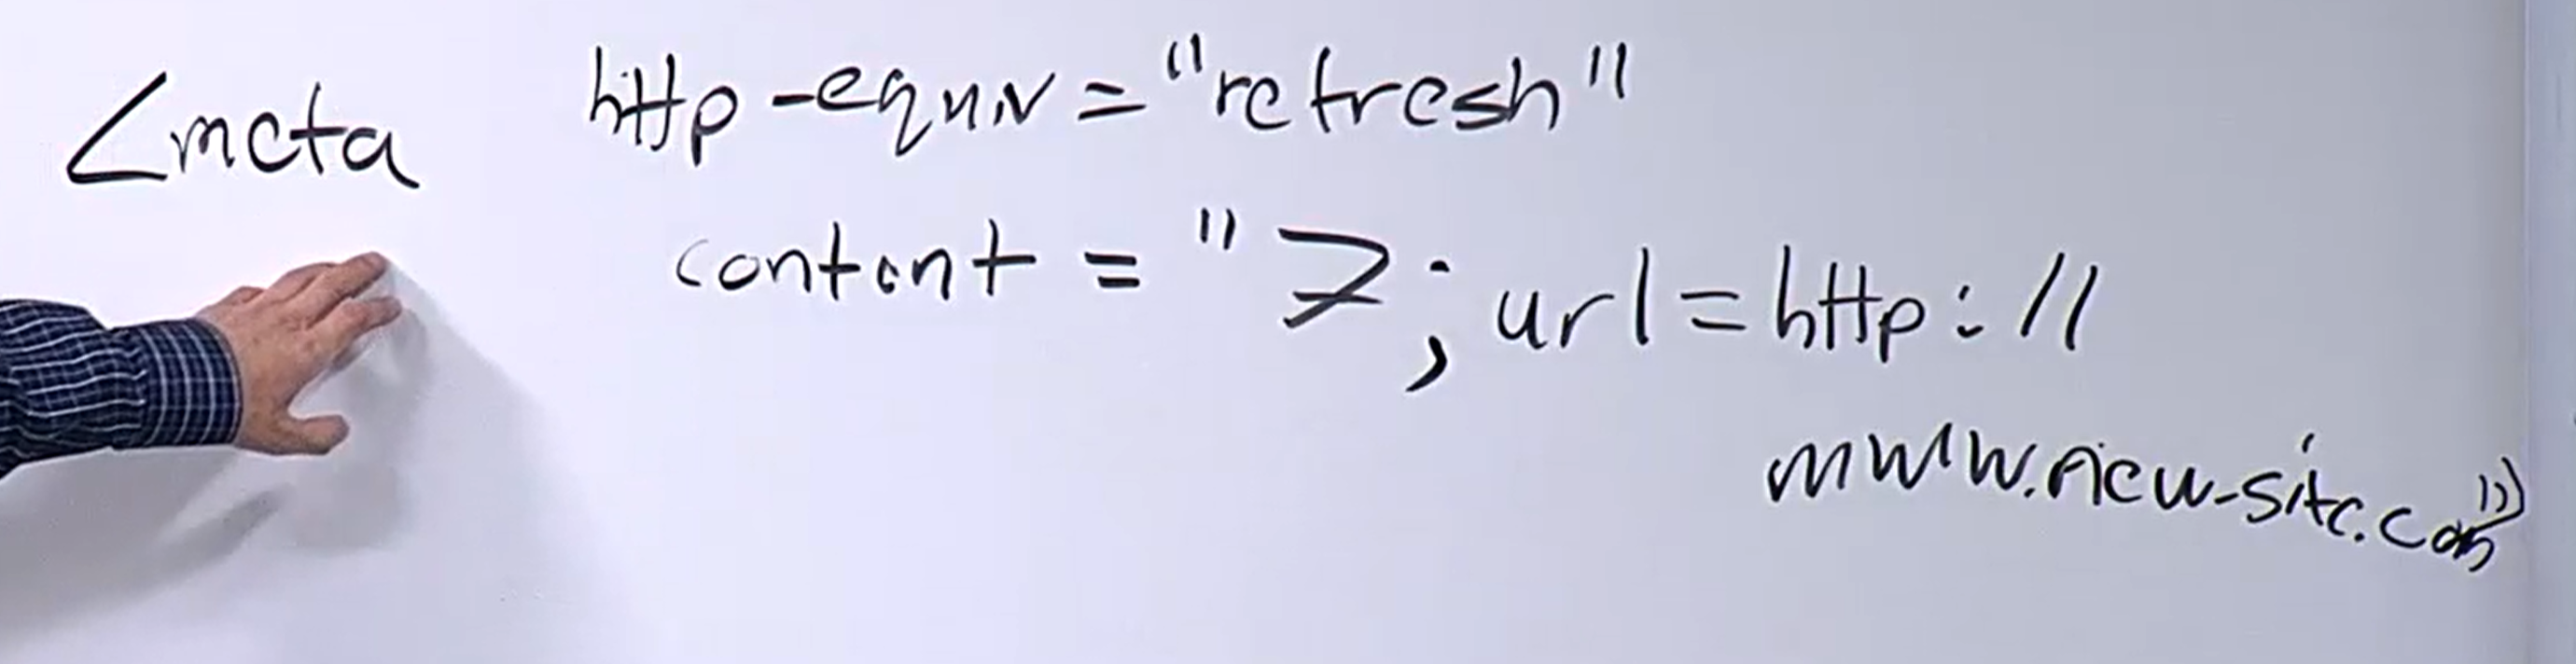 <meta http-equiv="refresh"
content = "7; url=http://
www.new-site.com"